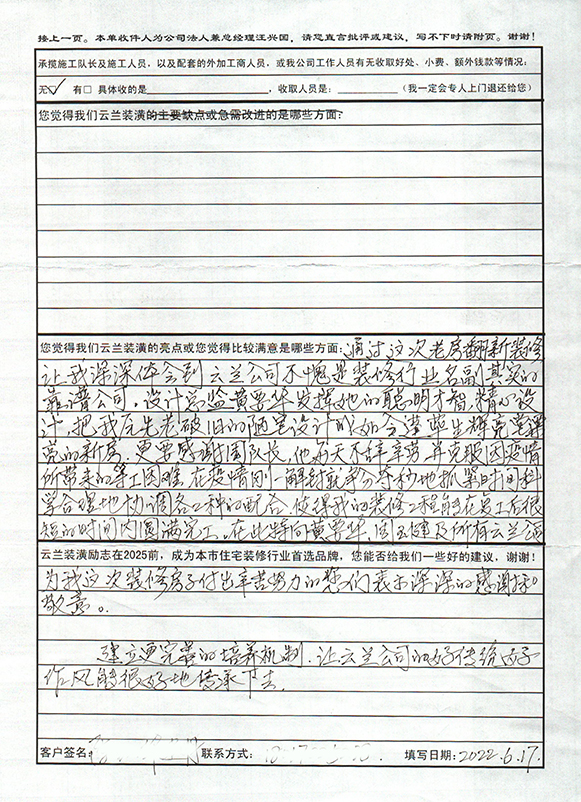 接上一页。本单收件人为公司法人兼总经理汪兴国，请您直言批评或建议，写不下时请附页。谢谢！
承揽施工队长及施工人员，以及配套的外加工商人员，或我公司工作人员有无收取好处、小费、额外钱款等情况：
无☑ 有□ 具体收的是＿＿＿＿＿＿＿＿，收取人员是：＿＿＿＿（我一定会专人上门退还给您）
您觉得我们云兰装潢的主要缺点或急需改进的是哪些方面：
您觉得我们云兰装潢的亮点或您觉得比较满意是哪些方面：通过这次老房翻新装修
让我深深体会到云兰公司不愧是装修行业名副其实的
靠谱公司。设计总监黄梦华发挥她的聪明才智，精心设
计，把我原先老破旧的陋室设计成如今蓬荜生辉完美漂
亮的新房。更要感谢周队长，他每天不辞辛劳，并克服因疫情
所带来的等工困难，在疫情刚一解封就争分夺秒地抓紧时间科
学合理地协调各工种的配合，使得我的装修工程能在复工后很
短的时间内圆满完工。在此特向黄梦华、周玉健及所有云兰公司
云兰装潢励志在2025前，成为本市住宅装修行业首选品牌，您能否给我们一些好的建议，谢谢！
为我这次装修房子付出辛苦努力的您们表示深深的感谢和
敬意。
建立更完善的培养机制，让云兰公司的好传统好
作风能很好地传承下去。
客户签名： 联系方式： 填写日期：2022.6.17.